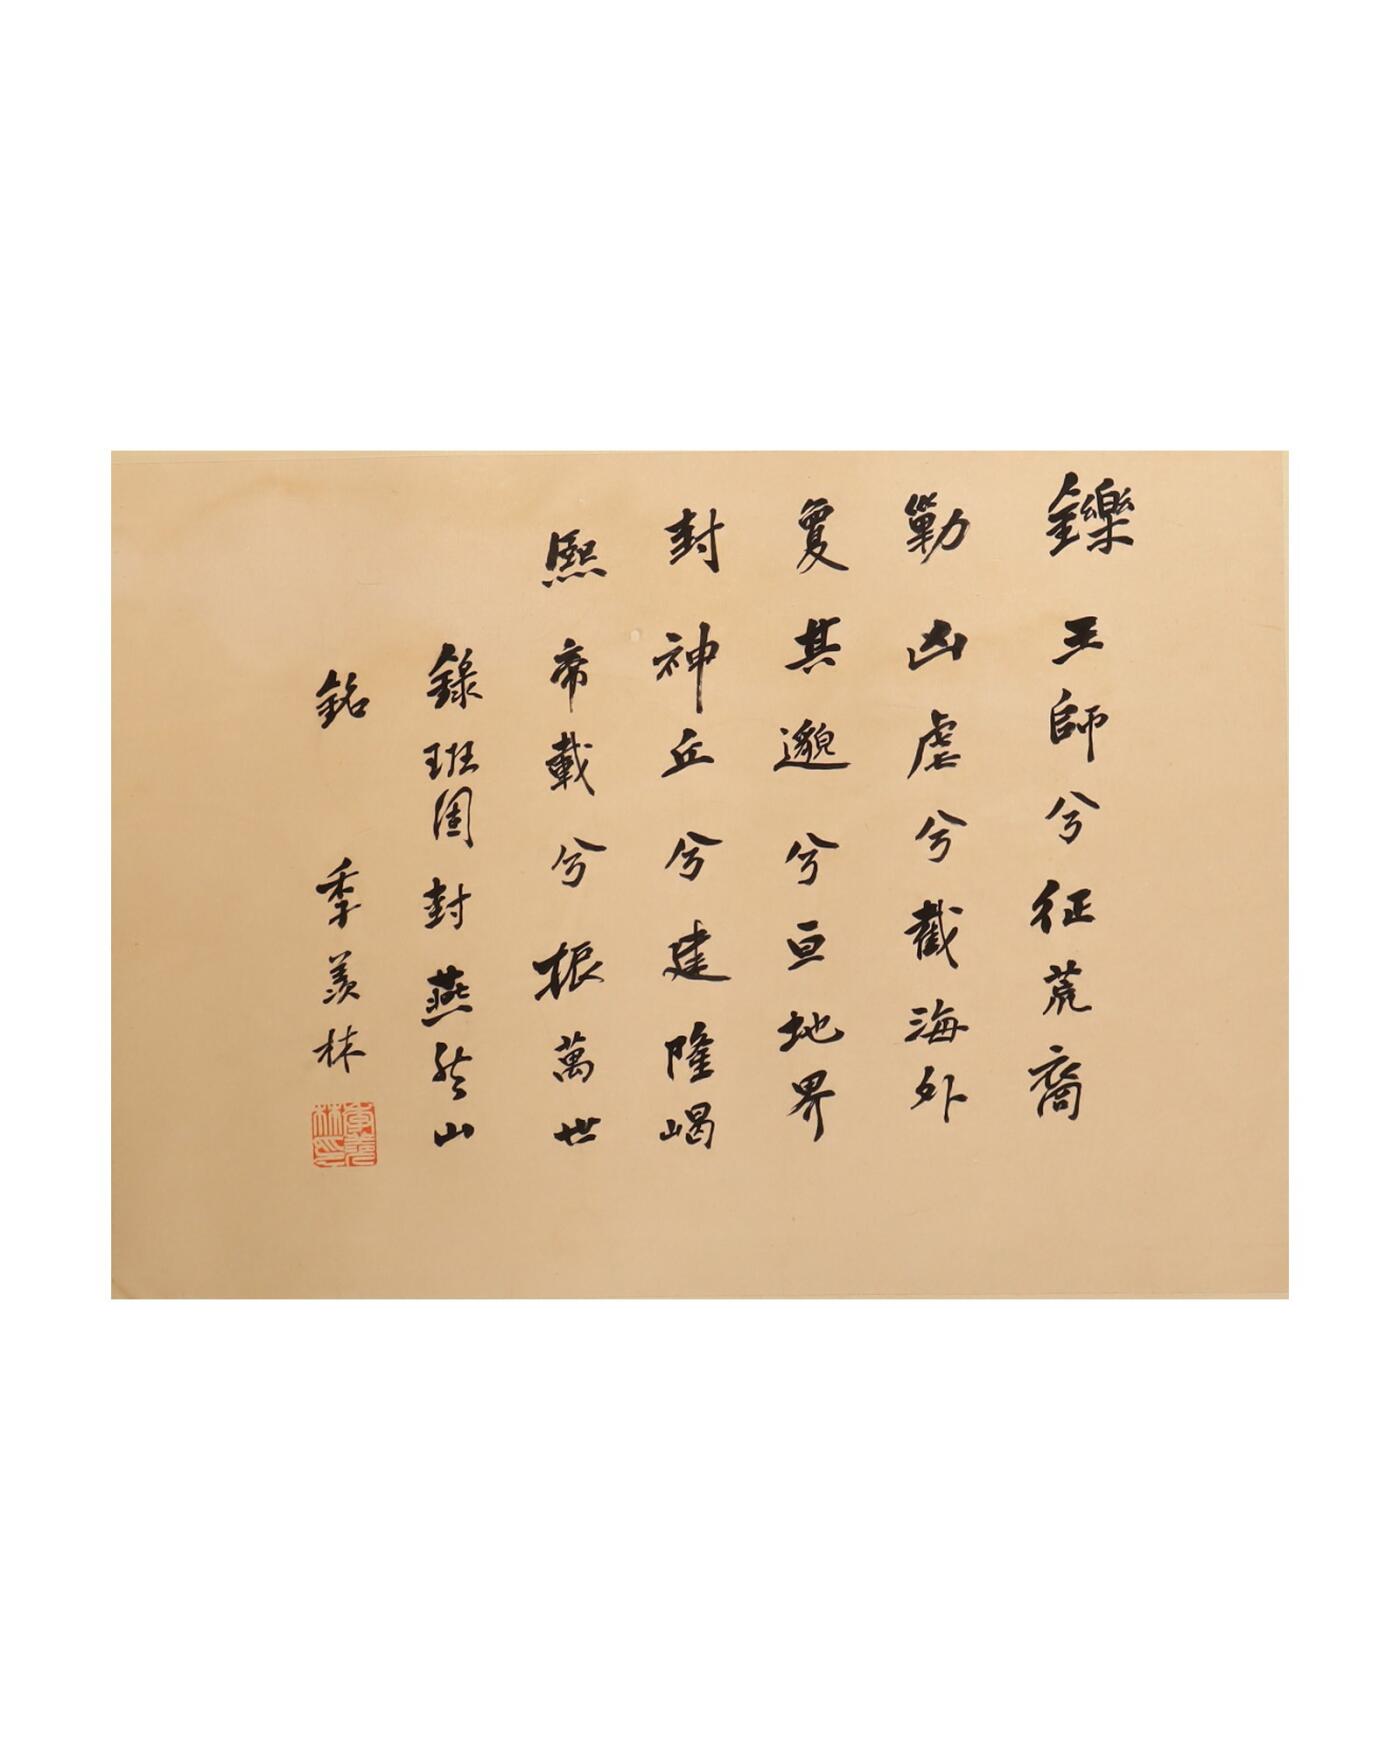 鑠王師兮征荒裔
勦凶虐兮截海外
夐其邈兮亘地界
封神丘兮建隆嵑
熙帝載兮振萬世
錄班固封燕然山
銘 季羨林
季羨林印